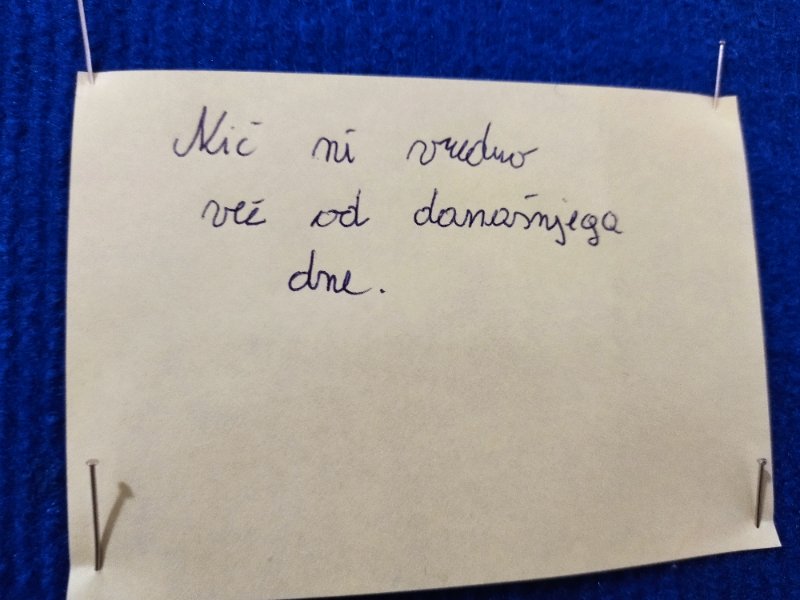 Nič ni vredno
več od današnjega
dne.